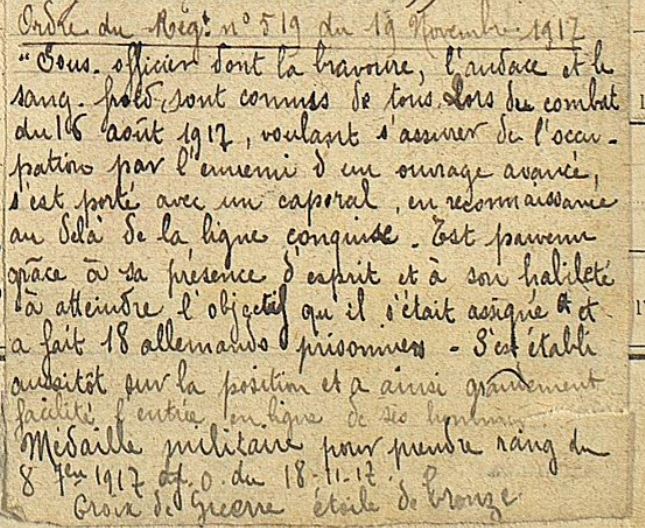 Ordre du Régt n° 519 du 19 Novembre 1917
"Sous-officier dont la bravoure, l'audace et le
sang-froid, sont connus de tous. Lors du combat
du 16 août 1917, voulant s'assurer de l'occu-
pation par l'ennemi d'un ouvrage avancé,
s'est porté avec un caporal, en reconnaissance
au delà de la ligne conquise. Est parvenu
grâce à sa présence d'esprit et à son habileté
à atteindre l'objectif qu'il s'était assigné et
a fait 18 allemands prisonniers - S'est établi
aussitôt sur la position et a ainsi grandement
facilité l'entrée en ligne de ses hommes
Médaille militaire pour prendre rang du
8 7bre 1917 O. du 18-11-17
Croix de Guerre étoile de bronze